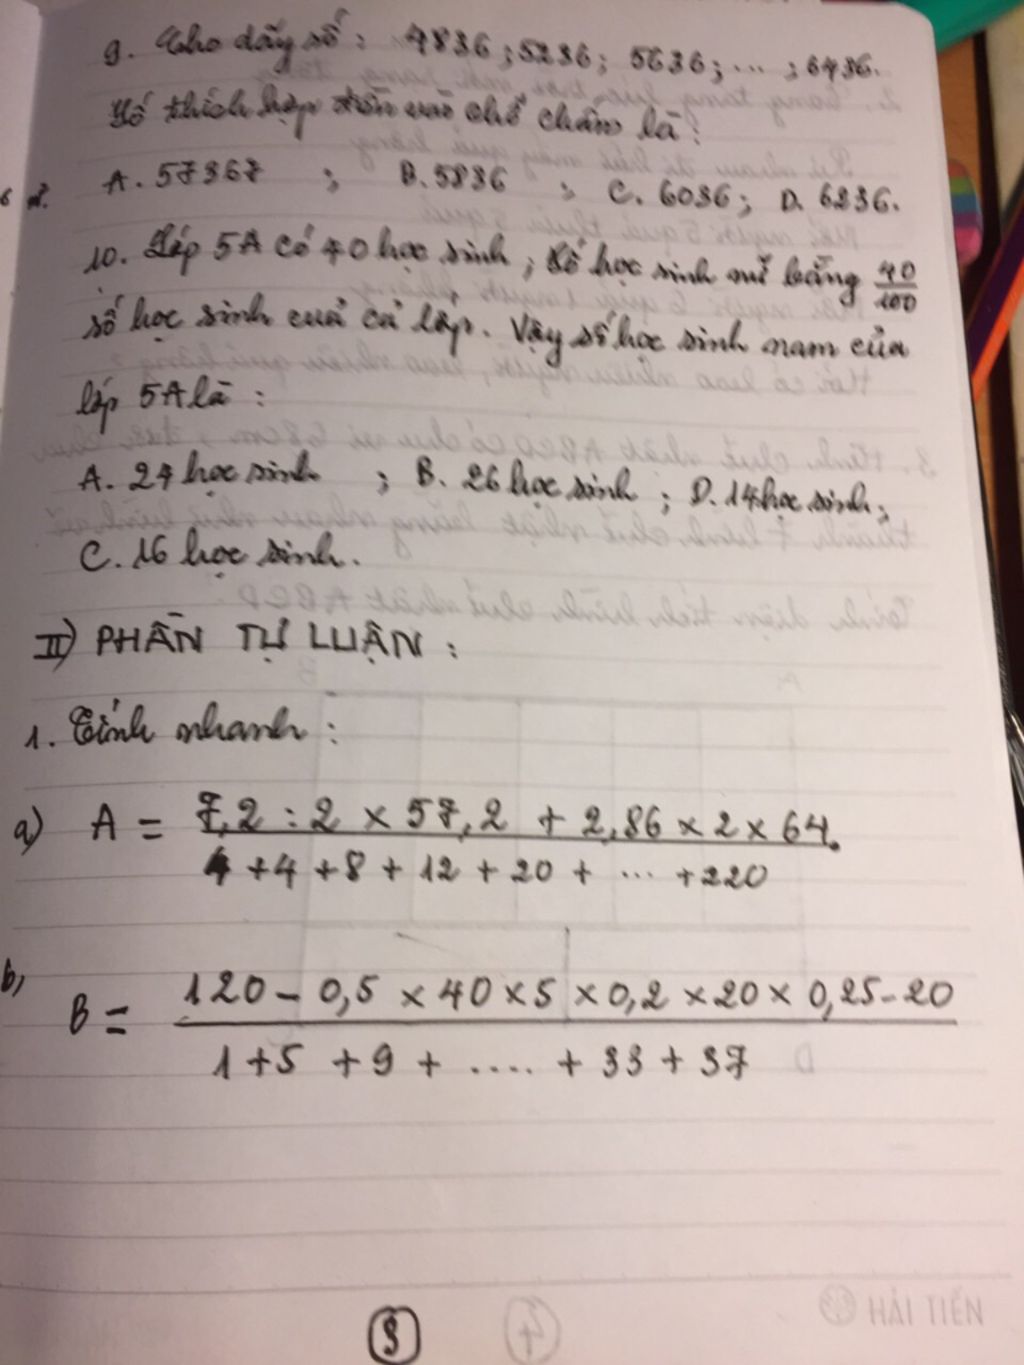 9. Cho dãy số : 4836 ; 5236 ; 5636 ; ... ; 6436.
Số thích hợp điền vào chỗ chấm là :
A. 57367 ; B. 5836 ; C. 6036 ; D. 6236.
10. Lớp 5A có 40 học sinh ; số học sinh nữ bằng 40/100
số học sinh của cả lớp. Vậy số học sinh nam của
lớp 5A là :
A. 24 học sinh ; B. 26 học sinh ; D. 14 học sinh ;
C. 16 học sinh.
II) PHẦN TỰ LUẬN :
1. Tính nhanh :
a) A = 7,2 : 2 x 57,2 + 2,86 x 2 x 64
4 + 4 + 8 + 12 + 20 + ... + 220
b) B = 120 - 0,5 x 40 x 5 x 0,2 x 20 x 0,25 - 20
1 + 5 + 9 + .... + 33 + 37
3
4
HẢI TIẾN